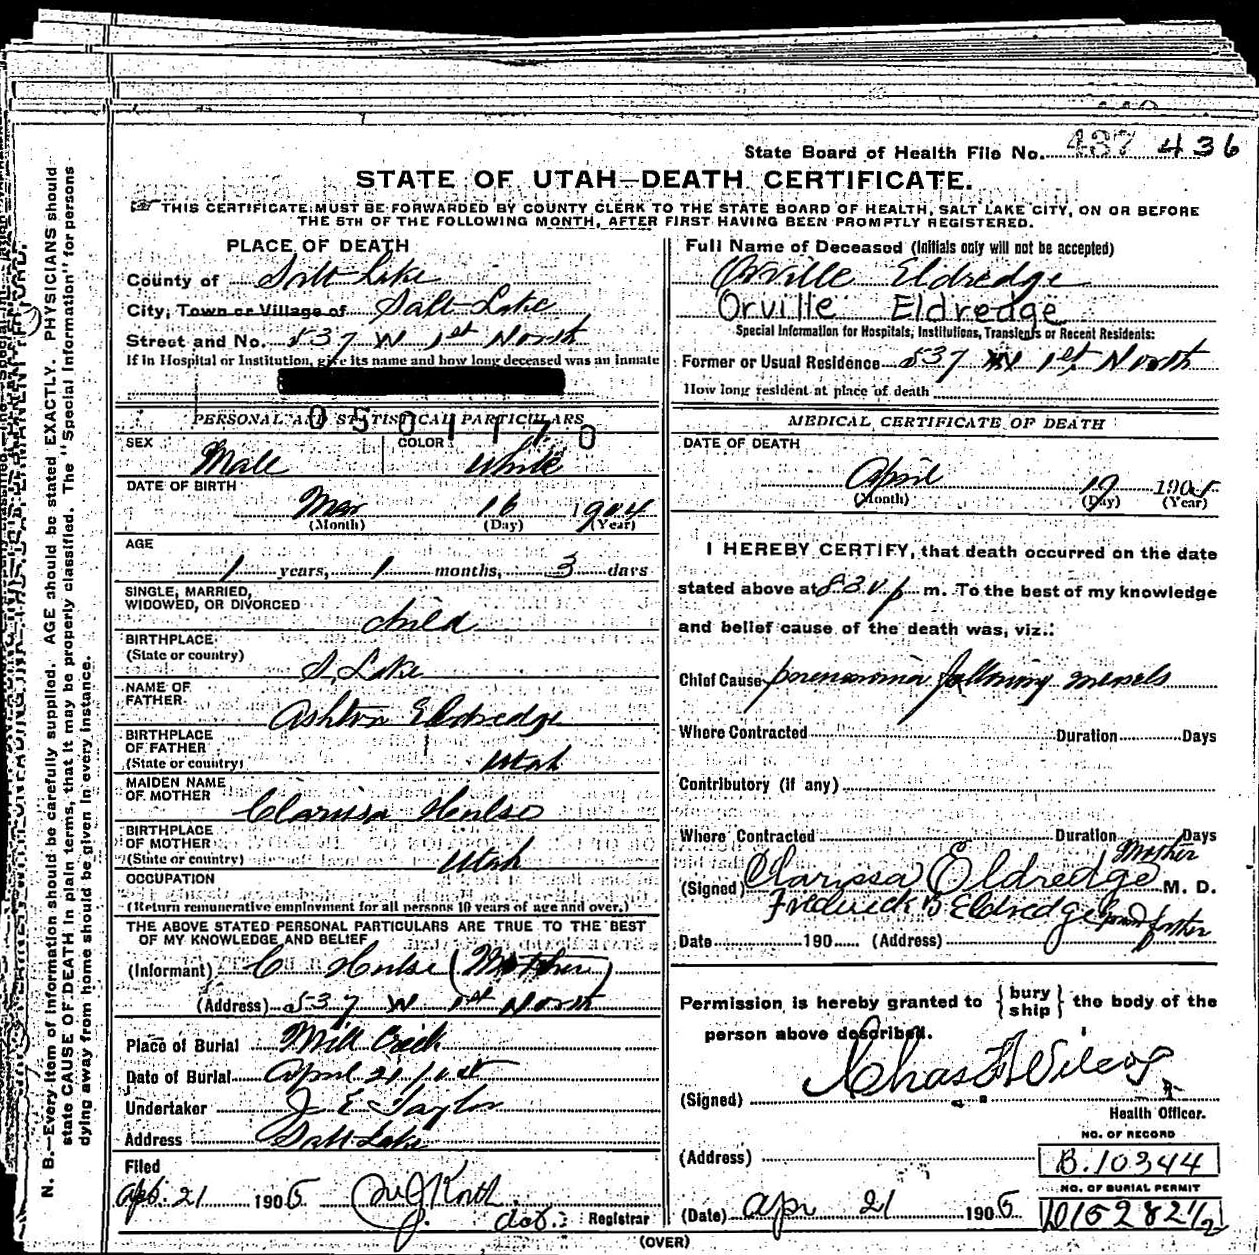 State Board of Health File No. 437 436
STATE OF UTAH—DEATH CERTIFICATE.
THIS CERTIFICATE MUST BE FORWARDED BY COUNTY CLERK TO THE STATE BOARD OF HEALTH, SALT LAKE CITY, ON OR BEFORE
THE 5TH OF THE FOLLOWING MONTH, AFTER FIRST HAVING BEEN PROMPTLY REGISTERED.
PLACE OF DEATH
County of Salt Lake
City, Town or Village of Salt Lake
Street and No. 537 W 1st North
If in Hospital or Institution, give its name and how long deceased was an inmate
0501170
PERSONAL AND STATISTICAL PARTICULARS
SEX Male COLOR White
DATE OF BIRTH
Mar 16 1904
(Month) (Day) (Year)
AGE
1 years, 1 months, 3 days
SINGLE, MARRIED,
WIDOWED, OR DIVORCED child
BIRTHPLACE
(State or country) S. Lake
NAME OF
FATHER Ashton Eldredge
BIRTHPLACE
OF FATHER
(State or country) Utah
MAIDEN NAME
OF MOTHER Clarissa Hulse
BIRTHPLACE
OF MOTHER
(State or country) Utah
OCCUPATION
(Return remunerative employment for all persons 10 years of age and over.)
THE ABOVE STATED PERSONAL PARTICULARS ARE TRUE TO THE BEST
OF MY KNOWLEDGE AND BELIEF
(Informant) C Hulse (Mother)
(Address) 537 W 1st North
Place of Burial Mill Creek
Date of Burial April 21/05
Undertaker J E Taylor
Address Salt Lake
Filed
Apr. 21 1905
Registrar
Full Name of Deceased (Initials only will not be accepted)
Orville Eldredge
Orville Eldredge
Special Information for Hospitals, Institutions, Transients or Recent Residents:
Former or Usual Residence 537 W 1st North
How long resident at place of death
MEDICAL CERTIFICATE OF DEATH
DATE OF DEATH
April 19 1905
(Month) (Day) (Year)
I HEREBY CERTIFY, that death occurred on the date
stated above at 8 30 p m. To the best of my knowledge
and belief cause of the death was, viz.:
Chief Cause pneumonia following measels
Where Contracted Duration Days
Contributory (if any)
Where Contracted Duration Days
Mother
(Signed) Clarissa Eldredge M. D.
Frederick Eldredge grand father
Date 190 (Address)
Permission is hereby granted to {bury ship} the body of the
person above described.
(Signed) Chas F Wilcox
Health Officer.
NO. OF RECORD
(Address) B.10344
NO. OF BURIAL PERMIT
(Date) Apr 21 1905 D15282 1/2
(OVER)
N. B.—Every item of information should be carefully supplied. AGE should be stated EXACTLY. PHYSICIANS should
state CAUSE OF DEATH in plain terms, that it may be properly classified. The "Special Information" for persons
dying away from home should be given in every instance.